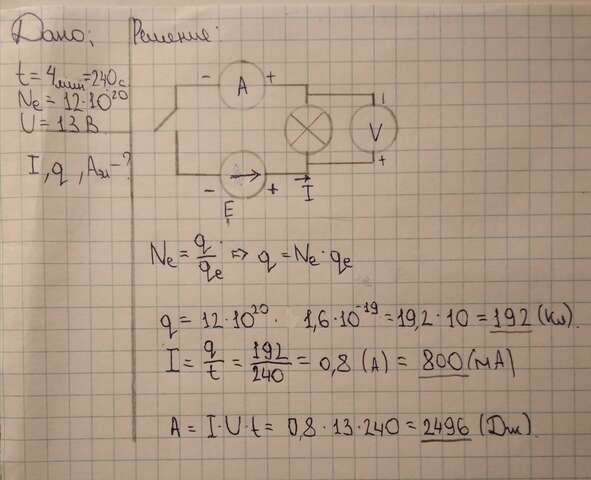 Дано:
Решение:
t = 4 мин = 240 с
Ne = 12·10²⁰
U = 13 В
I, q, Aэл - ?
- A +
- +
V
+
- +
I
E
Ne = q/qe => q = Ne · qe
q = 12·10²⁰ · 1,6·10⁻¹⁹ = 19,2·10 = 192 (Кл).
I = q/t = 192/240 = 0,8 (А) = 800 (мА)
A = I·U·t = 0,8·13·240 = 2496 (Дж).